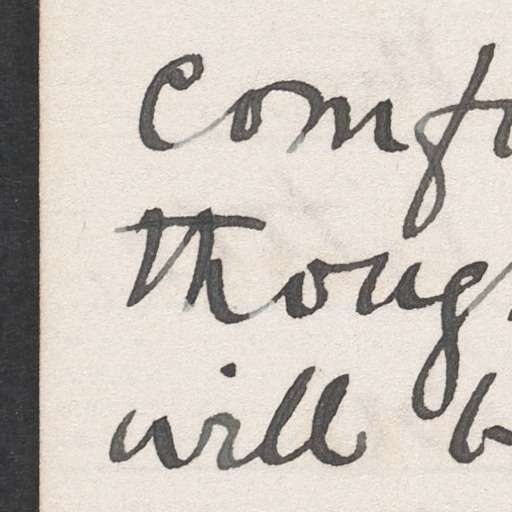 comfo
thoug
will b